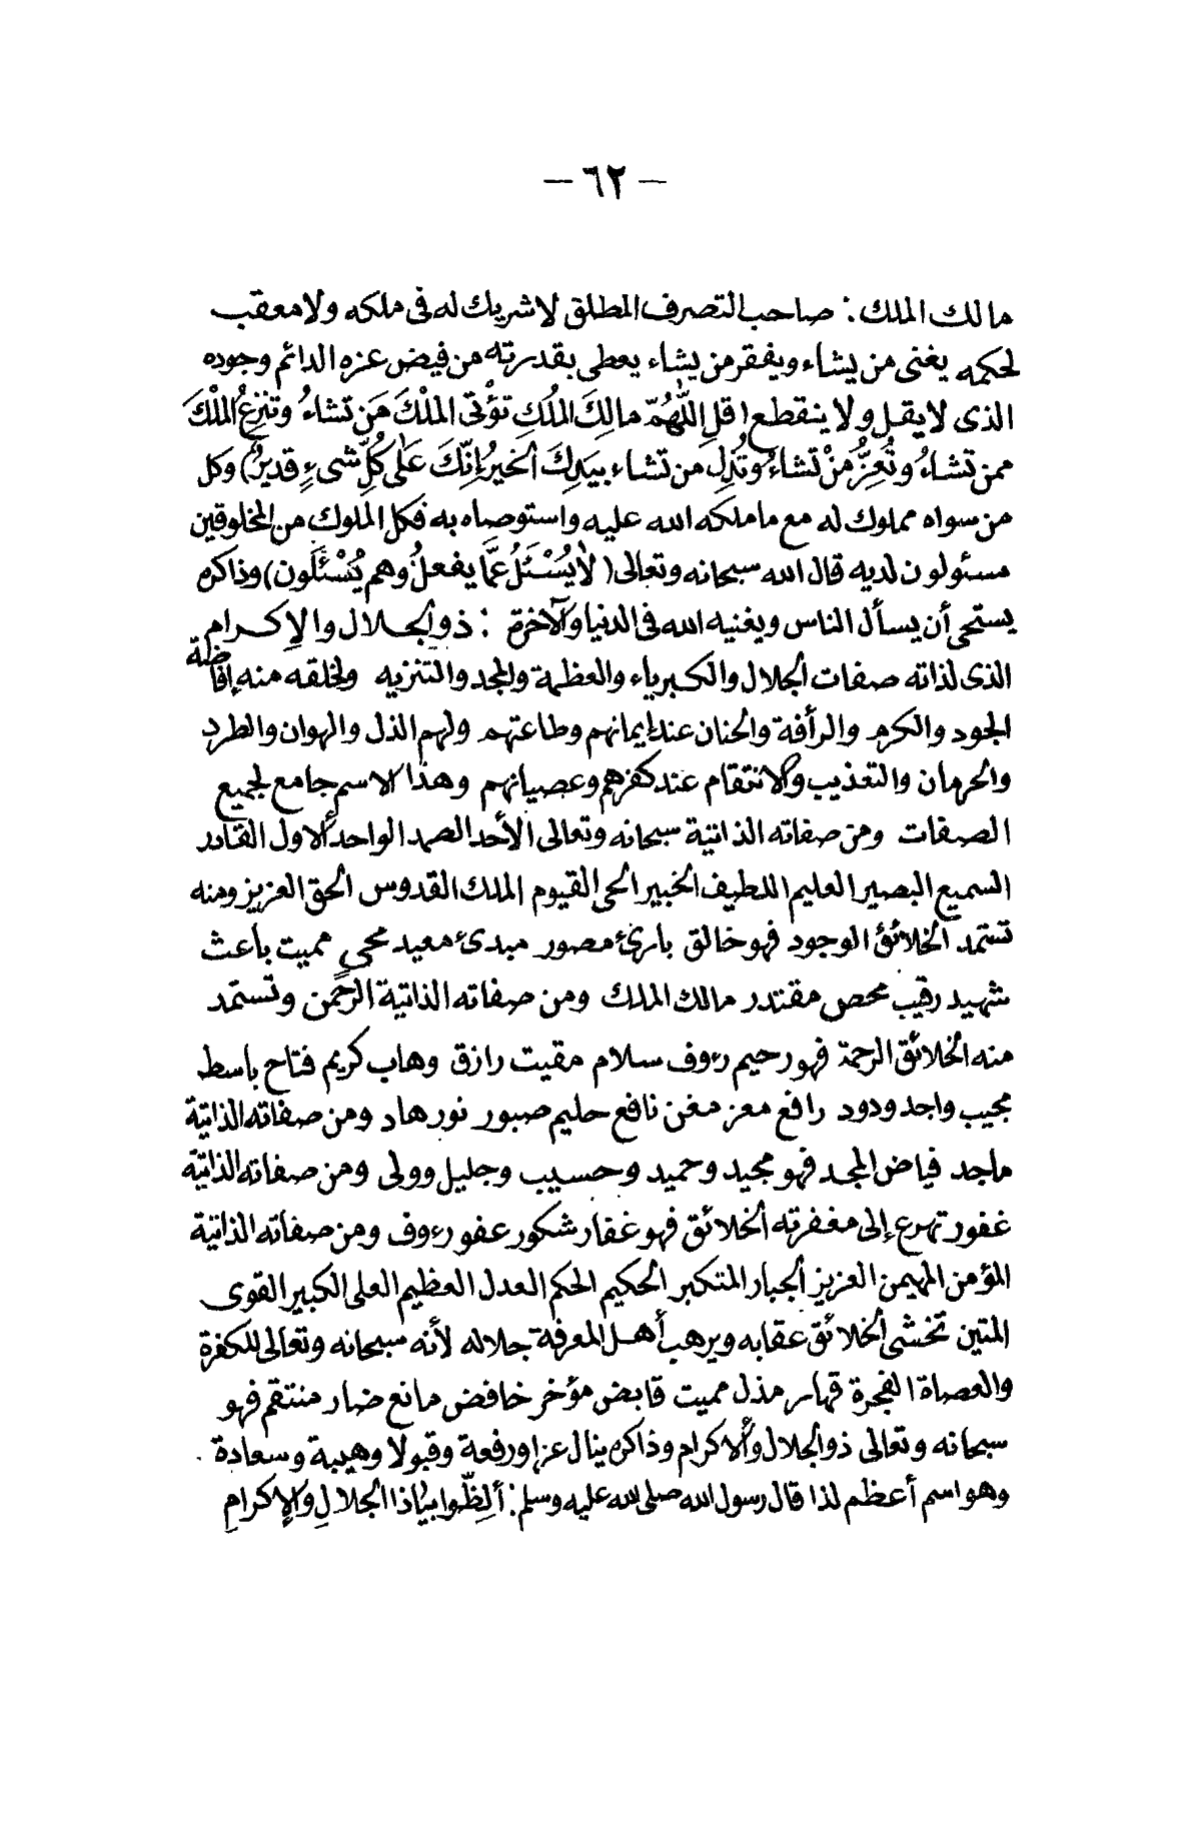 — ٦٢ —
مالك الملك : صاحب التصرف المطلق لا شريك له فى ملكه ولا معقب
لحكمه يغنى من يشاء ويفقر من يشاء يعطى بقدرته من فيض عزه الدائم وجوده
الذى لا يقل ولا ينقطع (قلِ اللَّهُمّ مالِكَ المُلكِ تؤْتى الملْكَ مَن تشاءُ وتنزِعُ الملْكَ
ممن تشاءُ وتُعِزُّ مَنْ تشاءُ وتُذِل من تشاء بيَدِكَ الخيرُ إنّكَ عَلَى كُلِّ شىءٍ قديرٌ) وكل
من سواه مملوك له مع ما ملكه الله عليه واستوصاه به فكل الملوك من المخلوقين
مسئولون لديه قال الله سبحانه وتعالى (لا يُسْئَلُ عمَّا يفعلُ وهم يُسْئَلون) وذاكره
يستحى أن يسأل الناس ويغنيه الله فى الدنيا والآخرة : ذو الجلال والإكرام
الذى لذاته صفات الجلال والكبرياء والعظمة والمجد والتنزيه ولخلقه منه إفاضة
الجود والكرم والرأفة والحنان عند إيمانهم وطاعتهم ولهم الذل والهوان والطرد
والحرمان والتعذيب والانتقام عند كفرهم وعصيانهم وهذا الاسم جامع لجميع
الصفات ومن صفاته الذاتية سبحانه وتعالى الأحد الصمد الواحد الأول القادر
السميع البصير العليم اللطيف الخبير الحى القيوم الملك القدوس الحق العزيز ومنه
تستمد الخلائق الوجود فهو خالق بارئ مصور مبدئ معيد محيى مميت باعث
شهيد رقيب محص مقتدر مالك الملك ومن صفاته الذاتية الرحمن وتستمد
منه الخلائق الرحمة فهو رحيم رءوف سلام مقيت رازق وهاب كريم فتاح باسط
مجيب واجد ودود رافع معز مغن نافع حليم صبور نور هاد ومن صفاته الذاتية
ماجد فياض المجد فهو مجيد وحميد وحسيب وجليل وولى ومن صفاته الذاتية
غفور تهرع إلى مغفرته الخلائق فهو غفار شكور عفو رءوف ومن صفاته الذاتية
المؤمن المهيمن العزيز الجبار المتكبر الحكيم الحكم العدل العظيم العلى الكبير القوى
المتين تخشى الخلائق عقابه ويرهب أهل المعرفة جلاله لأنه سبحانه وتعالى للكفرة
والعصاة الفجرة قهار مذل مميت قابض مؤخر خافض مانع ضار منتقم فهو
سبحانه وتعالى ذو الجلال والإكرام وذاكره ينال عزا ورفعة وقبولا وهيبة وسعادة
وهو اسم أعظم لذا قال رسول الله صلى الله عليه وسلم : ألِظّوا بيا ذا الجلالِ والإكرامِ